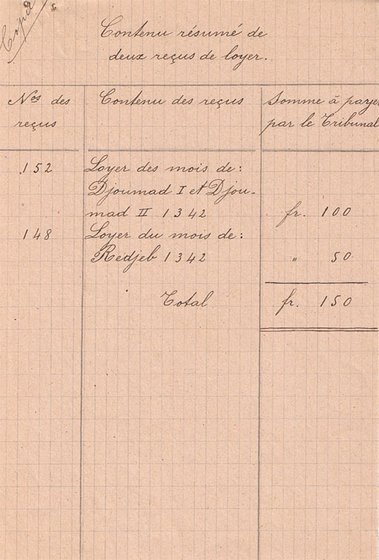 Copie
Contenu résumé de
deux reçus de loyer.
Nos des reçus | Contenu des reçus | Somme à payer par le Tribunal
152 | Loyer des mois de :
Djoumad I et Djou-
mad II 1342 | fr. 100
148 | Loyer du mois de :
Redjeb 1342 | " 50
Total | fr. 150